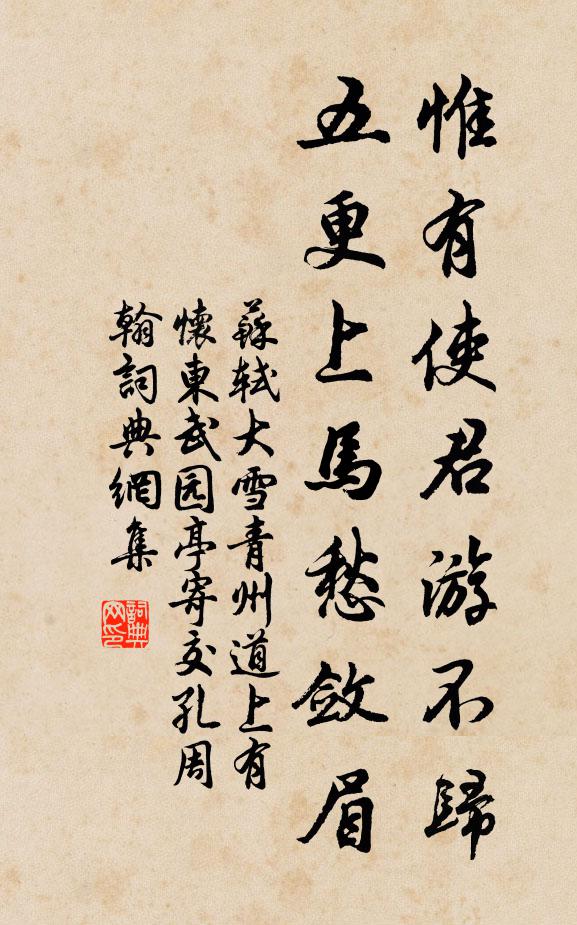 惟有使君游不歸
五更上馬愁斂眉
蘇軾大雪青州道上有
懷東武园亭寄交孔周
翰詞典網集
詞典
网印